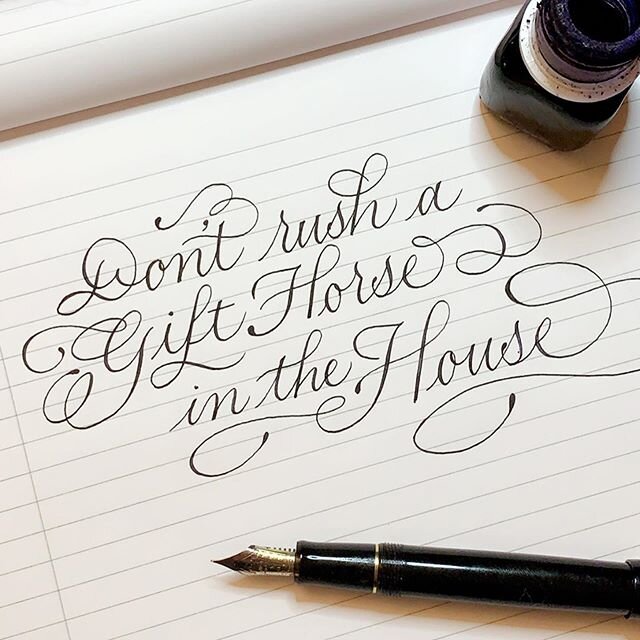 Don't rush a
Gift Horse
in the House